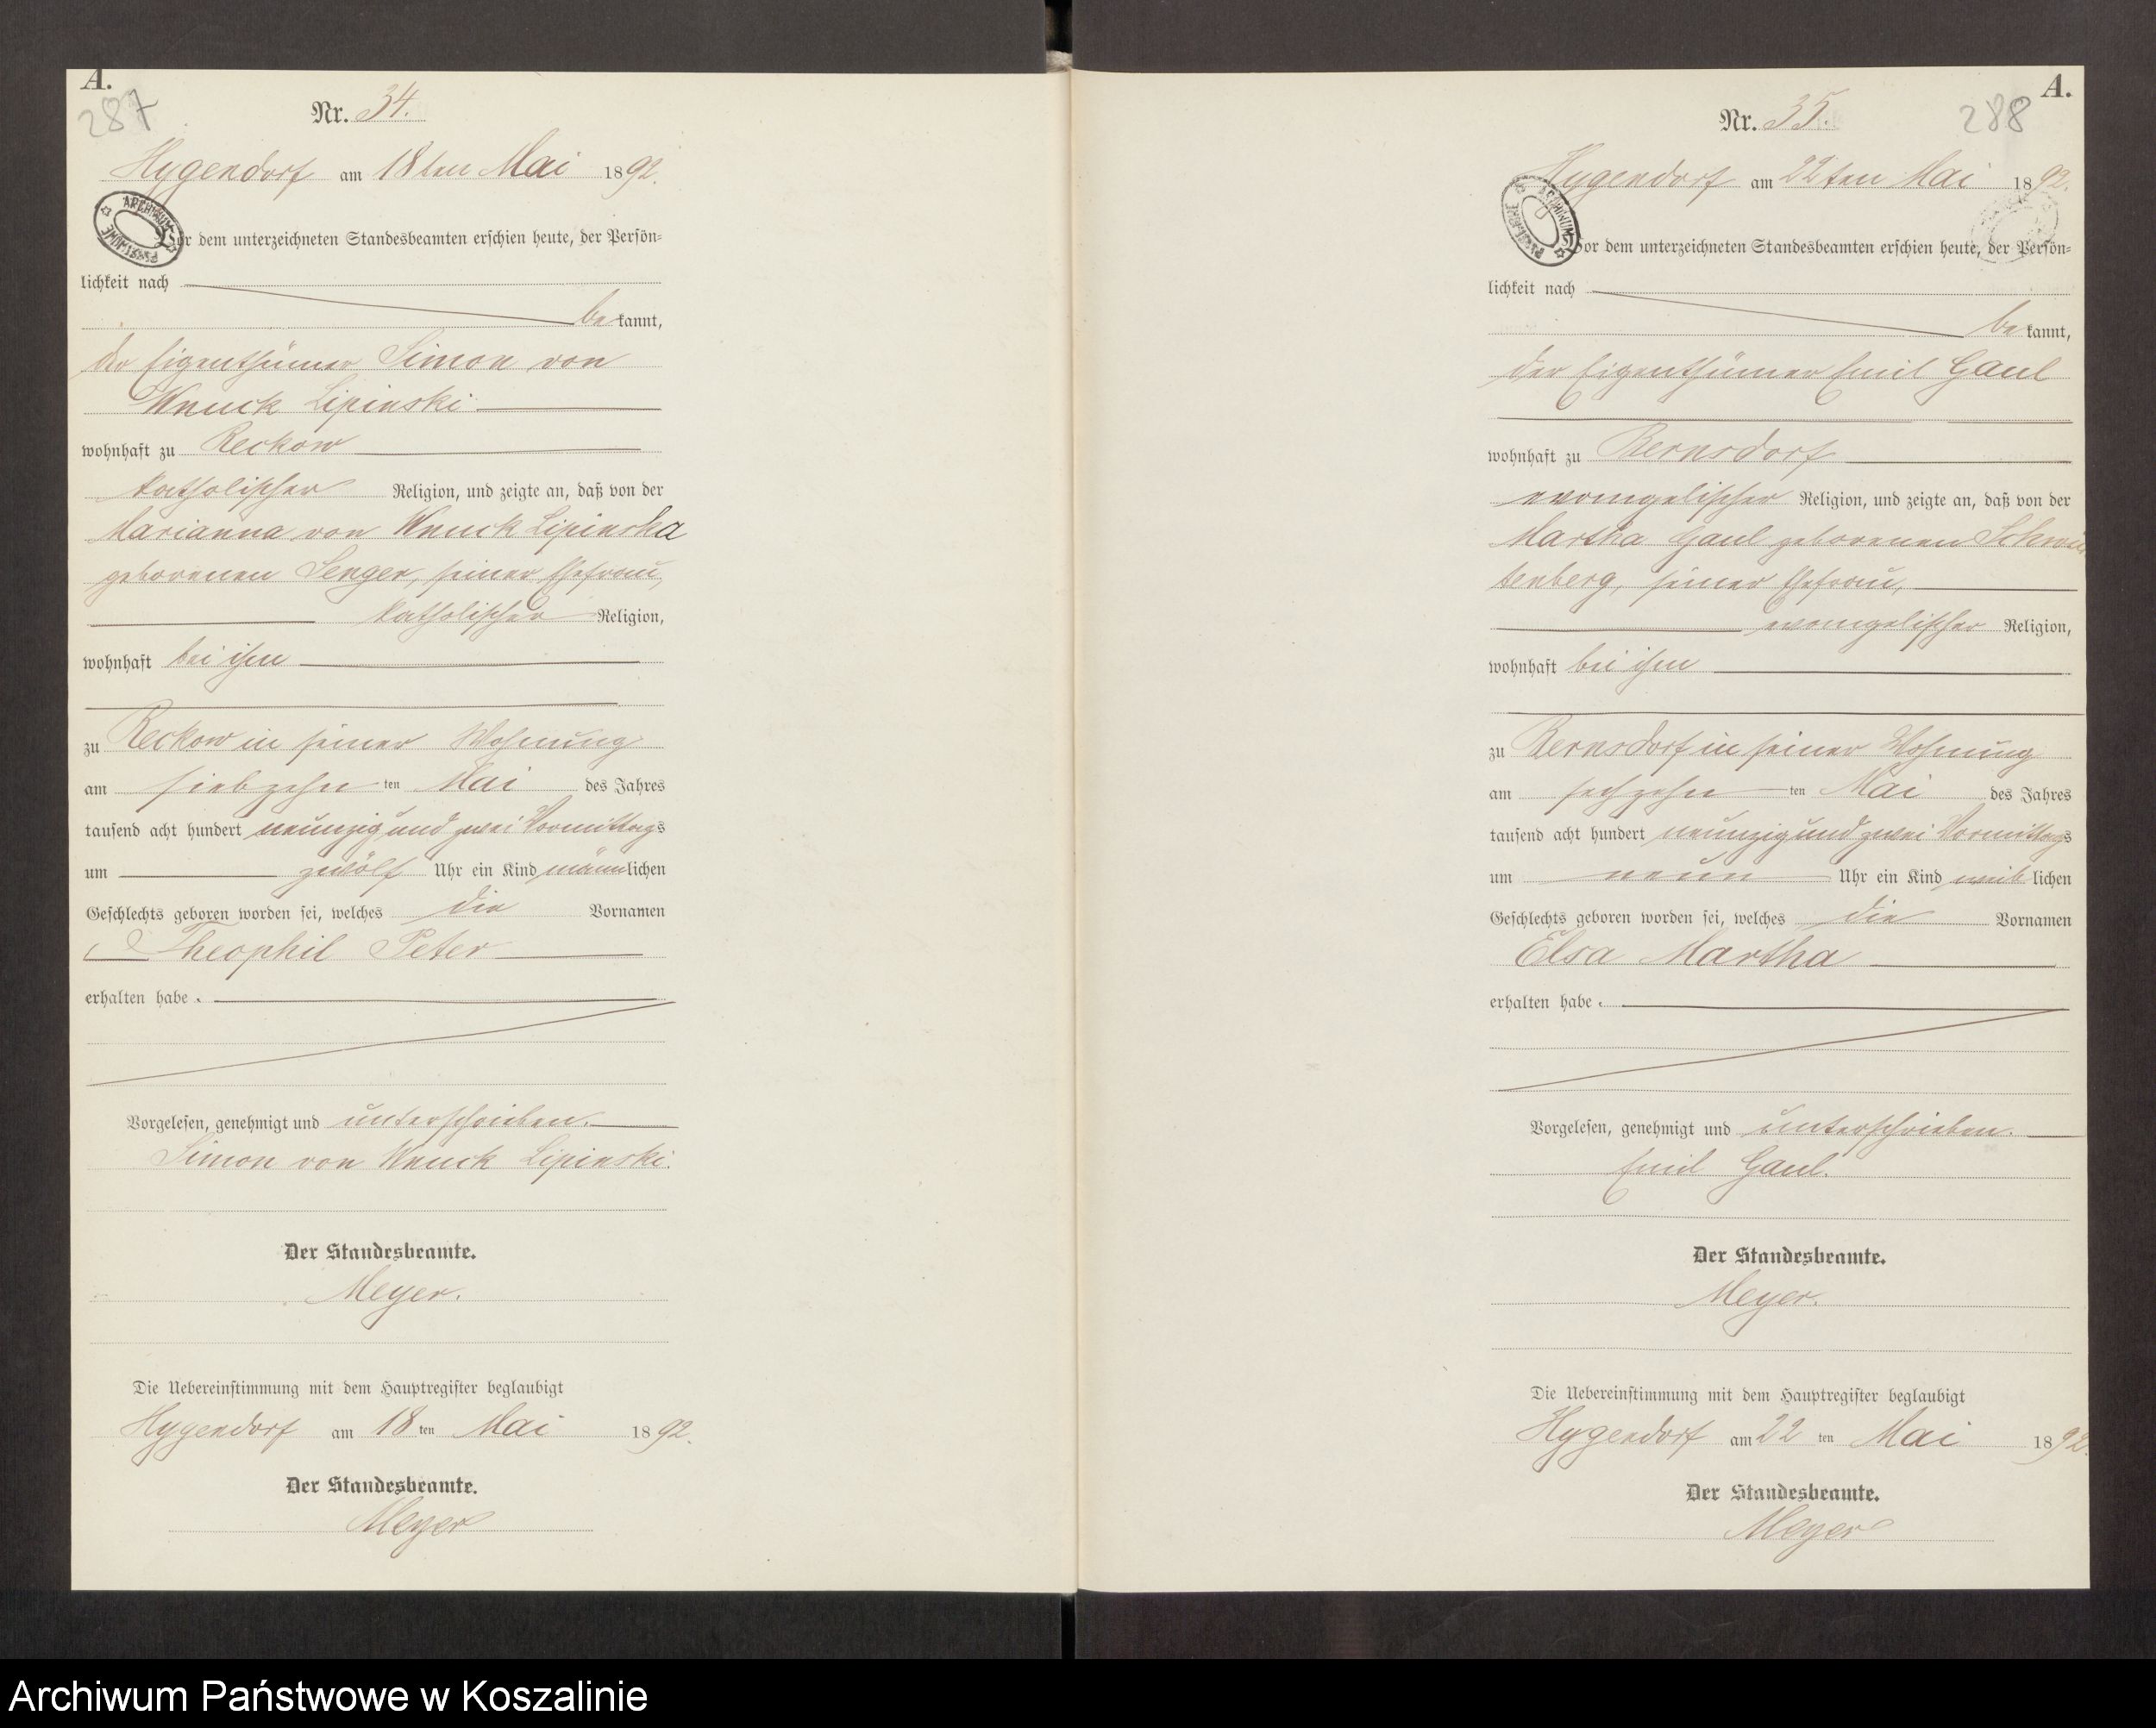 A.
287
Nr. 34.
Hygendorf am 18ten Mai 1892.
ARCHIWUM PAŃSTWOWE
Vor dem unterzeichneten Standesbeamten erschien heute, der Persön-
lichkeit nach
be kannt,
der Eigenthümer Simon von
Wnuck Lipinski
wohnhaft zu Reckow
katholischer Religion, und zeigte an, daß von der
Marianna von Wnuck Lipinska
geborenen Senger, seiner Ehefrau,
katholischer Religion,
wohnhaft bei ihm
zu Reckow in seiner Wohnung
am siebzehn ten Mai des Jahres
tausend acht hundert neunzig und zwei Vormittags
um zwölf Uhr ein Kind männlichen
Geschlechts geboren worden sei, welches die Vornamen
Theophil Peter
erhalten habe.
Vorgelesen, genehmigt und unterschrieben.
Simon von Wnuck Lipinski.
Der Standesbeamte.
Meyer.
Die Uebereinstimmung mit dem Hauptregister beglaubigt
Hygendorf am 18 ten Mai 1892.
Der Standesbeamte.
Meyer
A.
288
Nr. 35.
Hygendorf am 22ten Mai 1892.
ARCHIWUM PAŃSTWOWE
Vor dem unterzeichneten Standesbeamten erschien heute, der Persön-
lichkeit nach
be kannt,
der Eigenthümer Emil Gaul
wohnhaft zu Bernsdorf
evangelischer Religion, und zeigte an, daß von der
Martha Gaul geborenen
tenberg, seiner Ehefrau,
evangelischer Religion,
wohnhaft bei ihm
zu Bernsdorf in seiner Wohnung
am sechzehn ten Mai des Jahres
tausend acht hundert neunzig und zwei Vormittags
um neun Uhr ein Kind weib lichen
Geschlechts geboren worden sei, welches die Vornamen
Elsa Martha
erhalten habe.
Vorgelesen, genehmigt und unterschrieben.
Emil Gaul.
Der Standesbeamte.
Meyer.
Die Uebereinstimmung mit dem Hauptregister beglaubigt
Hygendorf am 22 ten Mai 1892.
Der Standesbeamte.
Meyer
Archiwum Państwowe w Koszalinie